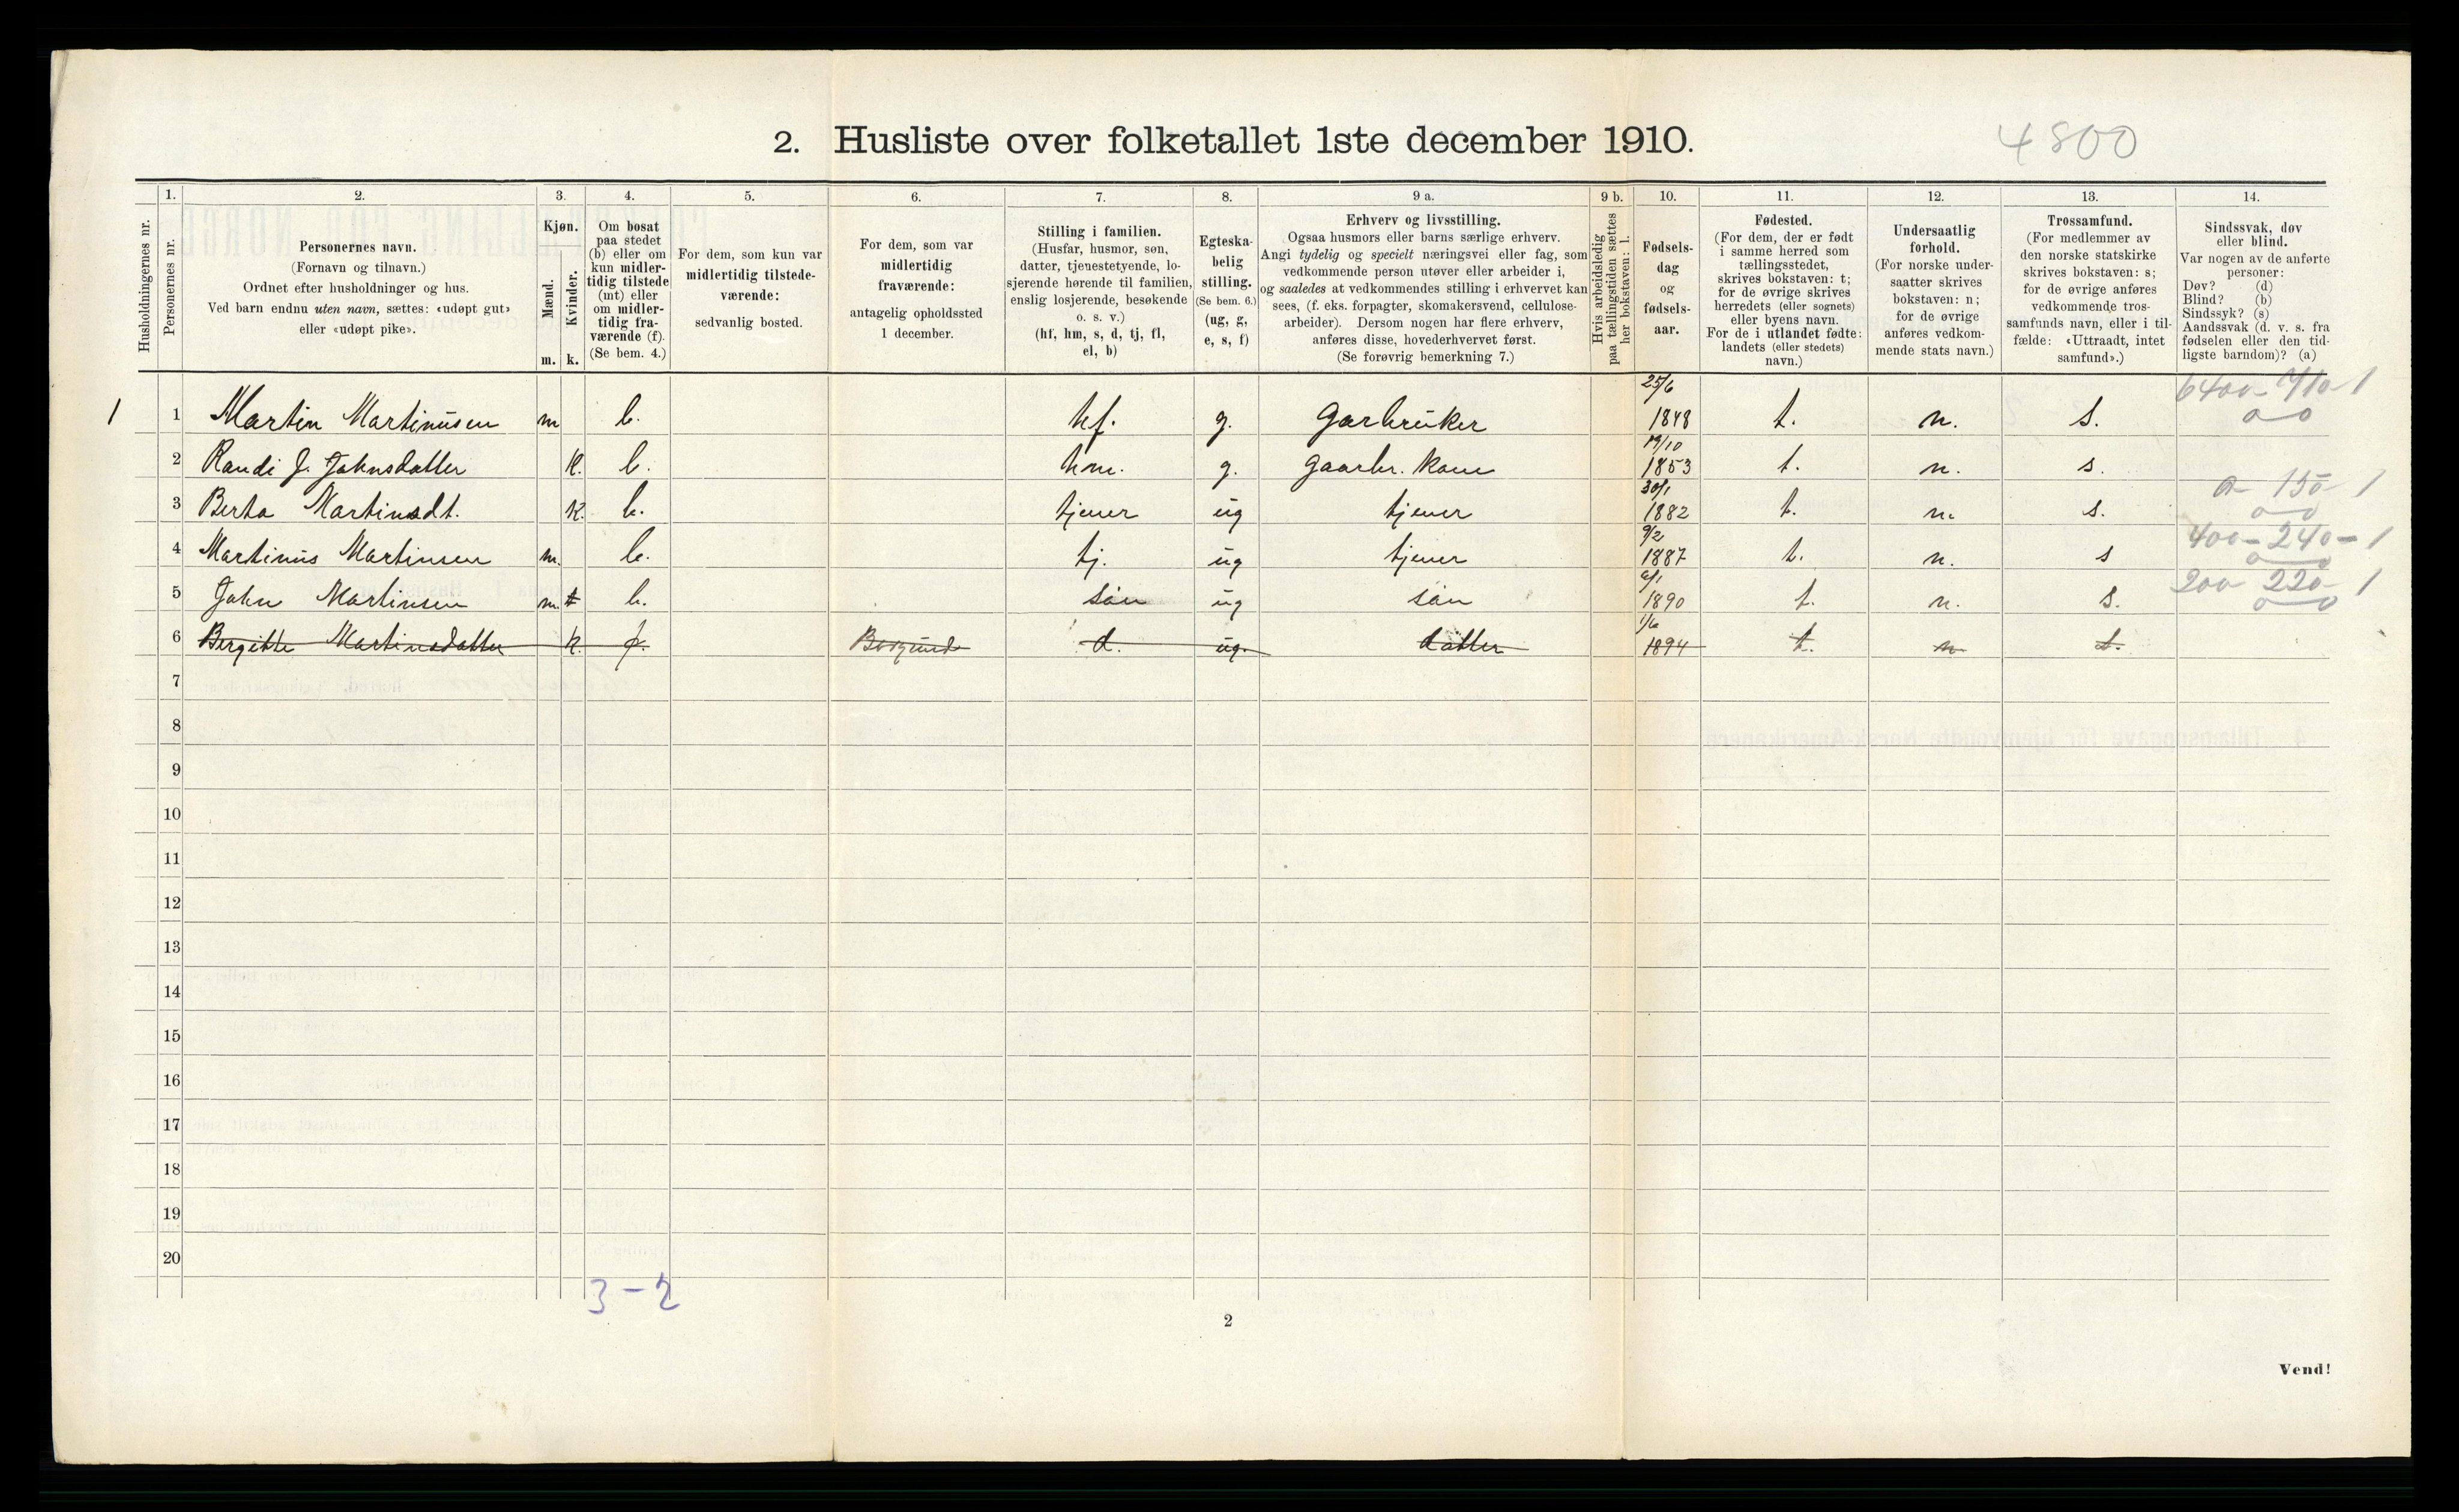 2. Husliste over folketallet 1ste december 1910.
4800
1. 2. 3. 4. 5. 6. 7. 8. 9 a. 9 b. 10. 11. 12. 13. 14.
Husholdningernes nr.
Personernes nr.
Personernes navn.
(Fornavn og tilnavn.)
Ordnet efter husholdninger og hus.
Ved barn endnu uten navn, sættes: «udøpt gut»
eller «udøpt pike».
Kjøn.
Mænd.
Kvinder.
m. k.
Om bosat
paa stedet
(b) eller om
kun midler-
tidig tilstede
(mt) eller
om midler-
tidig fra-
værende (f).
(Se bem. 4.)
For dem, som kun var
midlertidig tilstede-
værende:
sedvanlig bosted.
For dem, som var
midlertidig
fraværende:
antagelig opholdssted
1 december.
Stilling i familien.
(Husfar, husmor, søn,
datter, tjenestetyende, lo-
sjerende hørende til familien,
enslig losjerende, besøkende
o. s. v.)
(hf, hm, s, d, tj, fl,
el, b)
Egteska-
belig
stilling.
(Se bem. 6.)
(ug, g,
e, s, f)
Erhverv og livsstilling.
Ogsaa husmors eller barns særlige erhverv.
Angi tydelig og specielt næringsvei eller fag, som
vedkommende person utøver eller arbeider i,
og saaledes at vedkommendes stilling i erhvervet kan
sees, (f. eks. forpagter, skomakersvend, cellulose-
arbeider). Dersom nogen har flere erhverv,
anføres disse, hovederhvervet først.
(Se forøvrig bemerkning 7.)
Hvis arbeidsledig
paa tællingstiden sættes
her bokstaven: l.
Fødsels-
dag
og
fødsels-
aar.
Fødested.
(For dem, der er født
i samme herred som
tællingsstedet,
skrives bokstaven: t;
for de øvrige skrives
herredets (eller sognets)
eller byens navn.
For de i utlandet fødte:
landets (eller stedets)
navn.)
Undersaatlig
forhold.
(For norske under-
saatter skrives
bokstaven: n;
for de øvrige
anføres vedkom-
mende stats navn.)
Trossamfund.
(For medlemmer av
den norske statskirke
skrives bokstaven: s;
for de øvrige anføres
vedkommende tros-
samfunds navn, eller i til-
fælde: «Uttraadt, intet
samfund».)
Sindssvak, døv
eller blind.
Var nogen av de anførte
personer:
Døv? (d)
Blind? (b)
Sindssyk? (s)
Aandssvak (d. v. s. fra
fødselen eller den tid-
ligste barndom)? (a)
1 1 Martin Martinusen m b. hf. g. Garbruker 25/6 1848 t. n. s.
2 Randi J. Johnsdatter k. b. hm. g. gaarbr. kone 19/10 1853 t. n. s.
3 Berta Martinsdt. k. b. tjener ug tjener 30/1 1882 t. n. s. 150 1
4 Martinus Martinsen m. b. tj. ug tjener 9/2 1887 t. n. s 400 - 240 - 1
5 John Martinsen m. b. søn ug søn 6/1 1890 t. n. s. 200 220 1
6 Bergitte Martinsdatter k. f. Borgund d. ug. datter 1/6 1894 t. n s.
7
8
9
10
11
12
13
14
15
16
17
18
19
20
3 - 2
2
Vend!